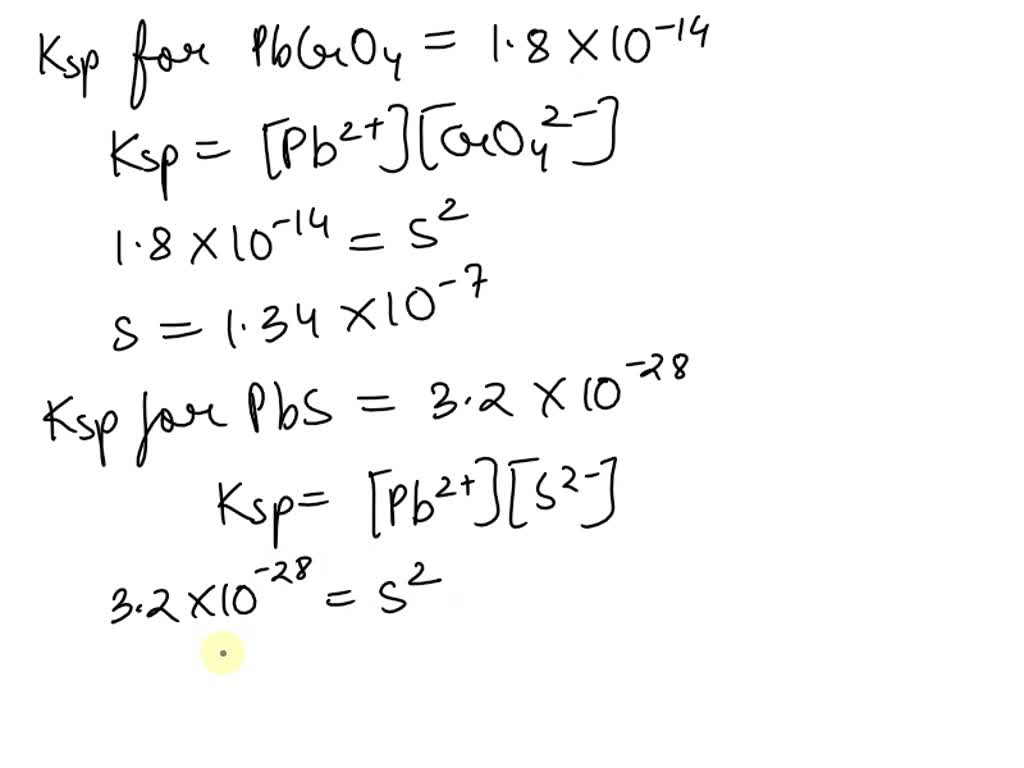 Ksp for PbCrO₄ = 1.8 × 10⁻¹⁴
Ksp = [Pb²⁺][CrO₄²⁻]
1.8 × 10⁻¹⁴ = S²
S = 1.34 × 10⁻⁷
Ksp for PbS = 3.2 × 10⁻²⁸
Ksp = [Pb²⁺][S²⁻]
3.2 × 10⁻²⁸ = S²